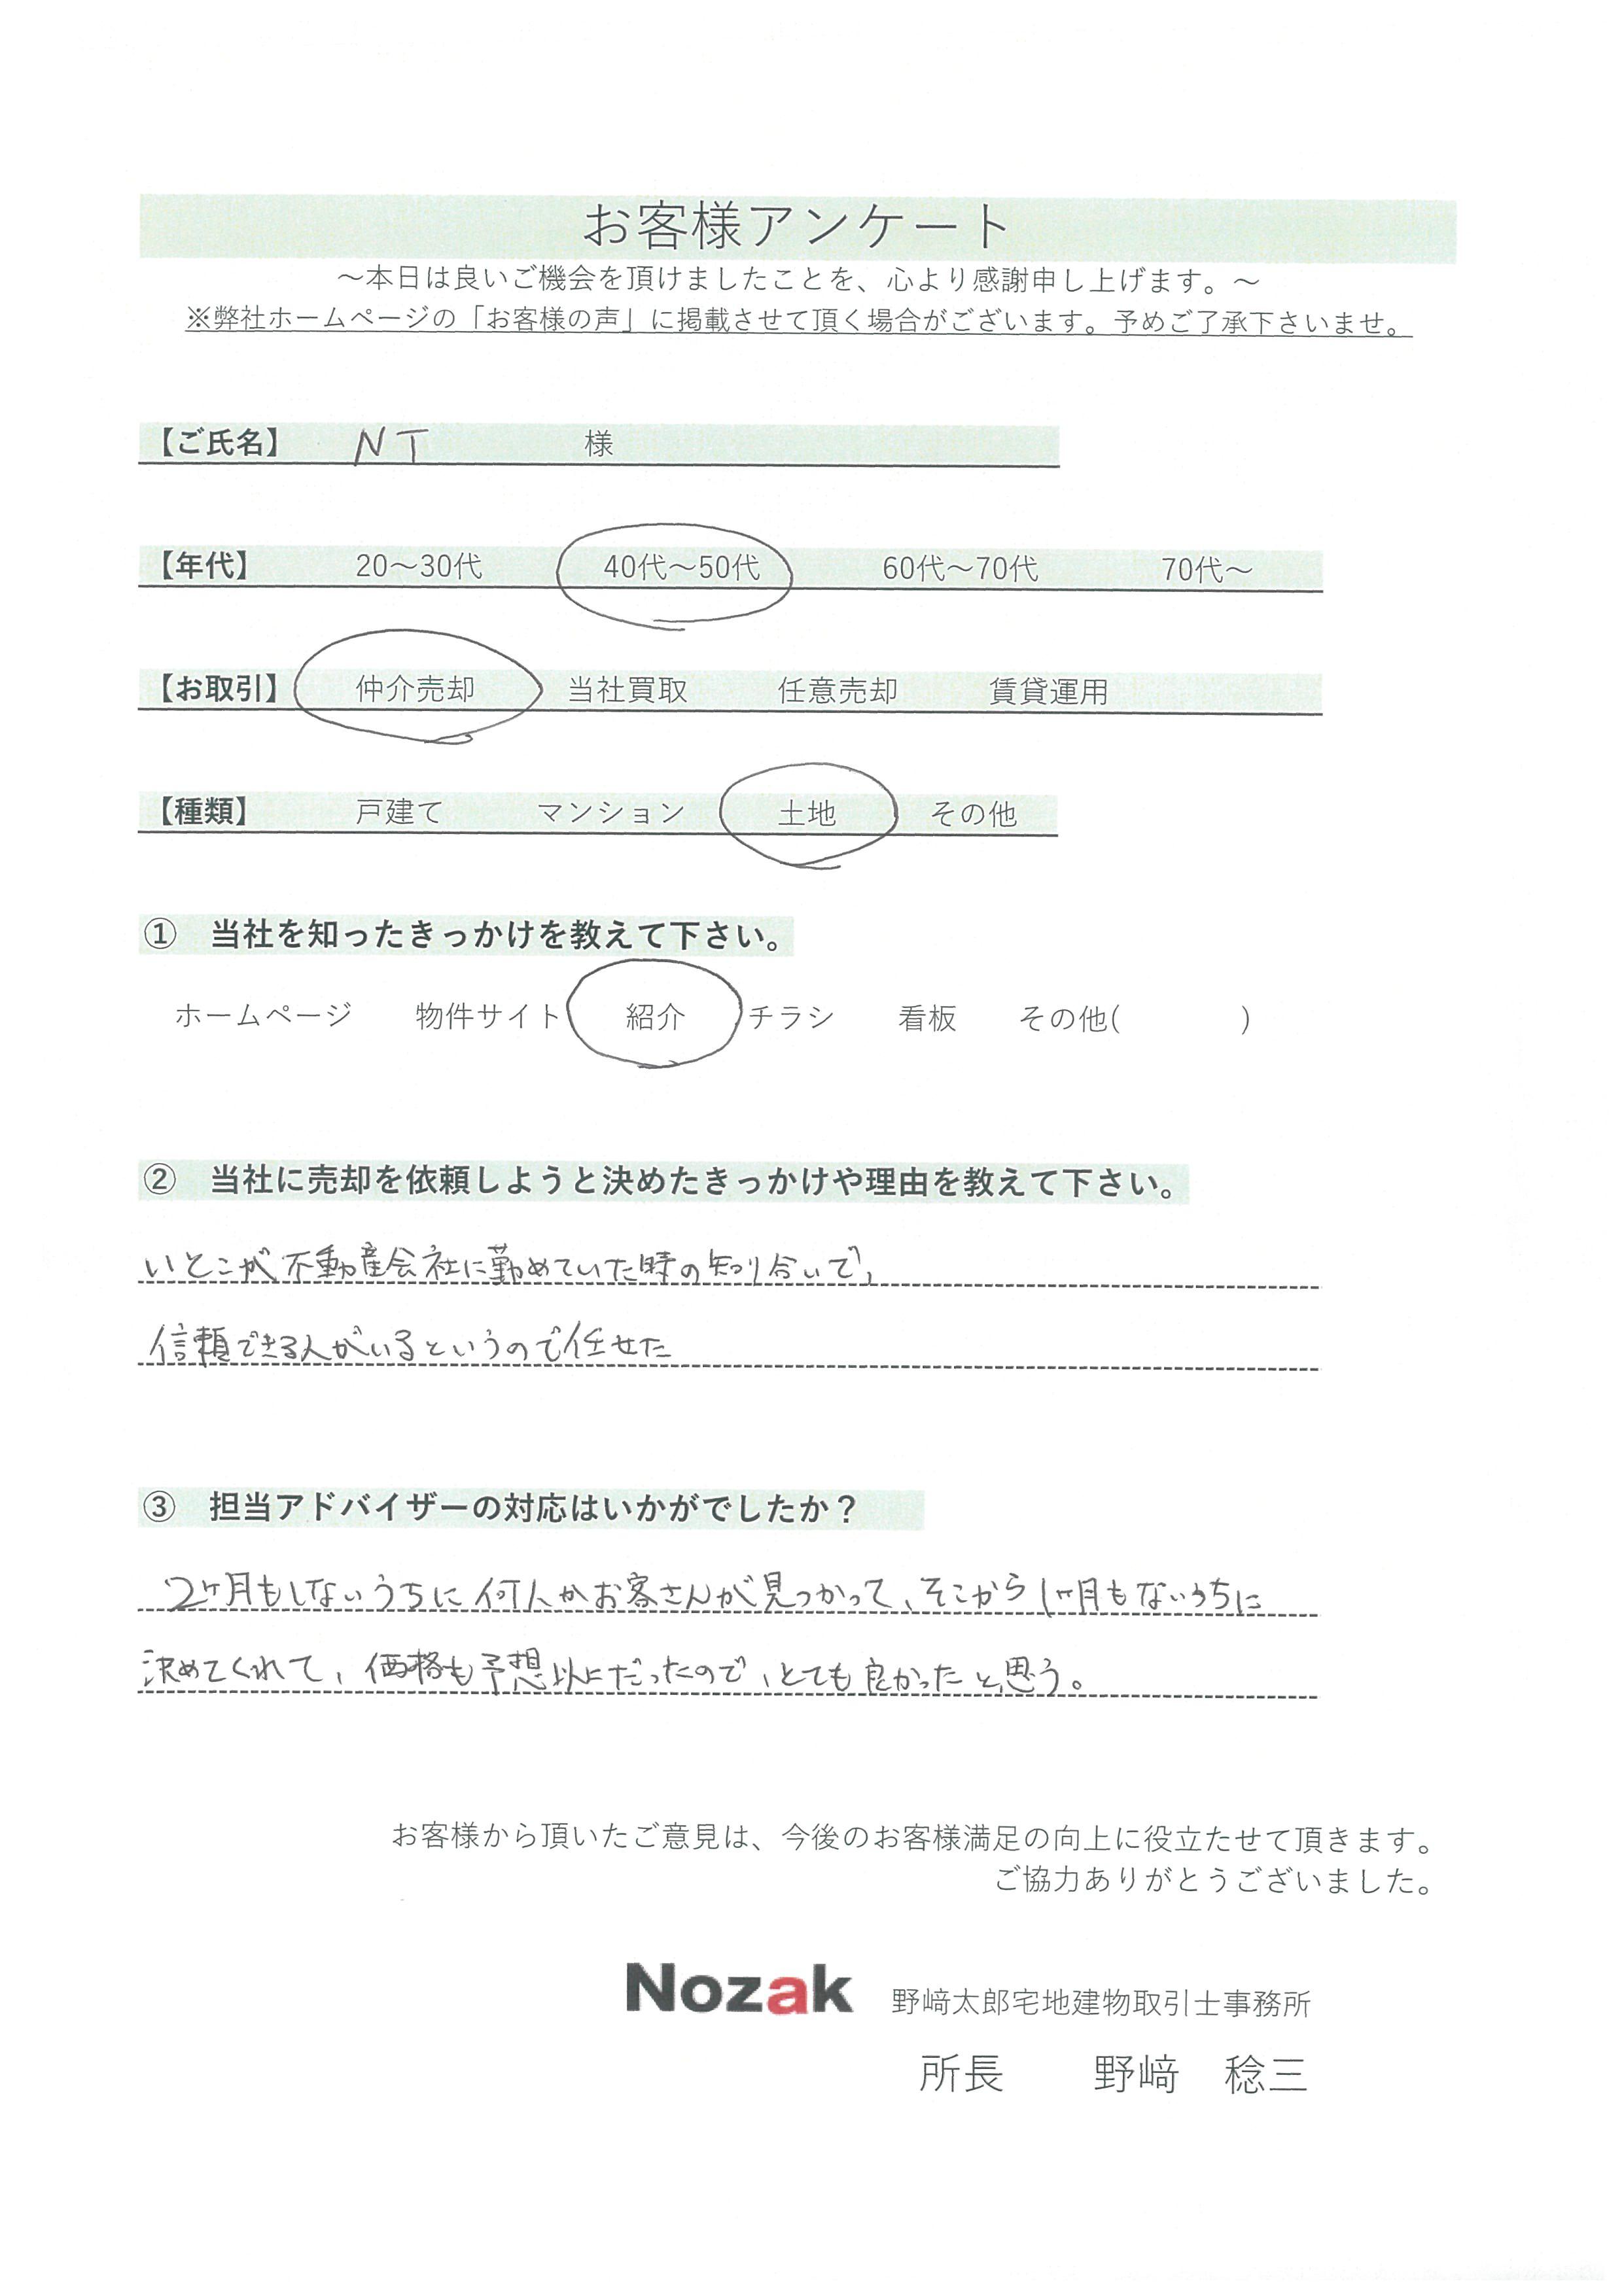 お客様アンケート
～本日は良いご機会を頂けましたことを、心より感謝申し上げます。～
※弊社ホームページの「お客様の声」に掲載させて頂く場合がございます。予めご了承下さいませ。
【ご氏名】 NT 様
【年代】 20～30代 40代～50代 60代～70代 70代～
【お取引】 仲介売却 当社買取 任意売却 賃貸運用
【種類】 戸建て マンション 土地 その他
① 当社を知ったきっかけを教えて下さい。
ホームページ 物件サイト 紹介 チラシ 看板 その他( )
② 当社に売却を依頼しようと決めたきっかけや理由を教えて下さい。
いとこが不動産会社に勤めていた時の知り合いで、
信頼できる人がいるというので任せた
③ 担当アドバイザーの対応はいかがでしたか？
2ヶ月もしないうちに何人かお客さんが見つかって、そこから1ヶ月もないうちに
決めてくれて、価格も予想以上だったので、とても良かったと思う。
お客様から頂いたご意見は、今後のお客様満足の向上に役立たせて頂きます。
ご協力ありがとうございました。
Nozak 野﨑太郎宅地建物取引士事務所
所長 野﨑 稔三